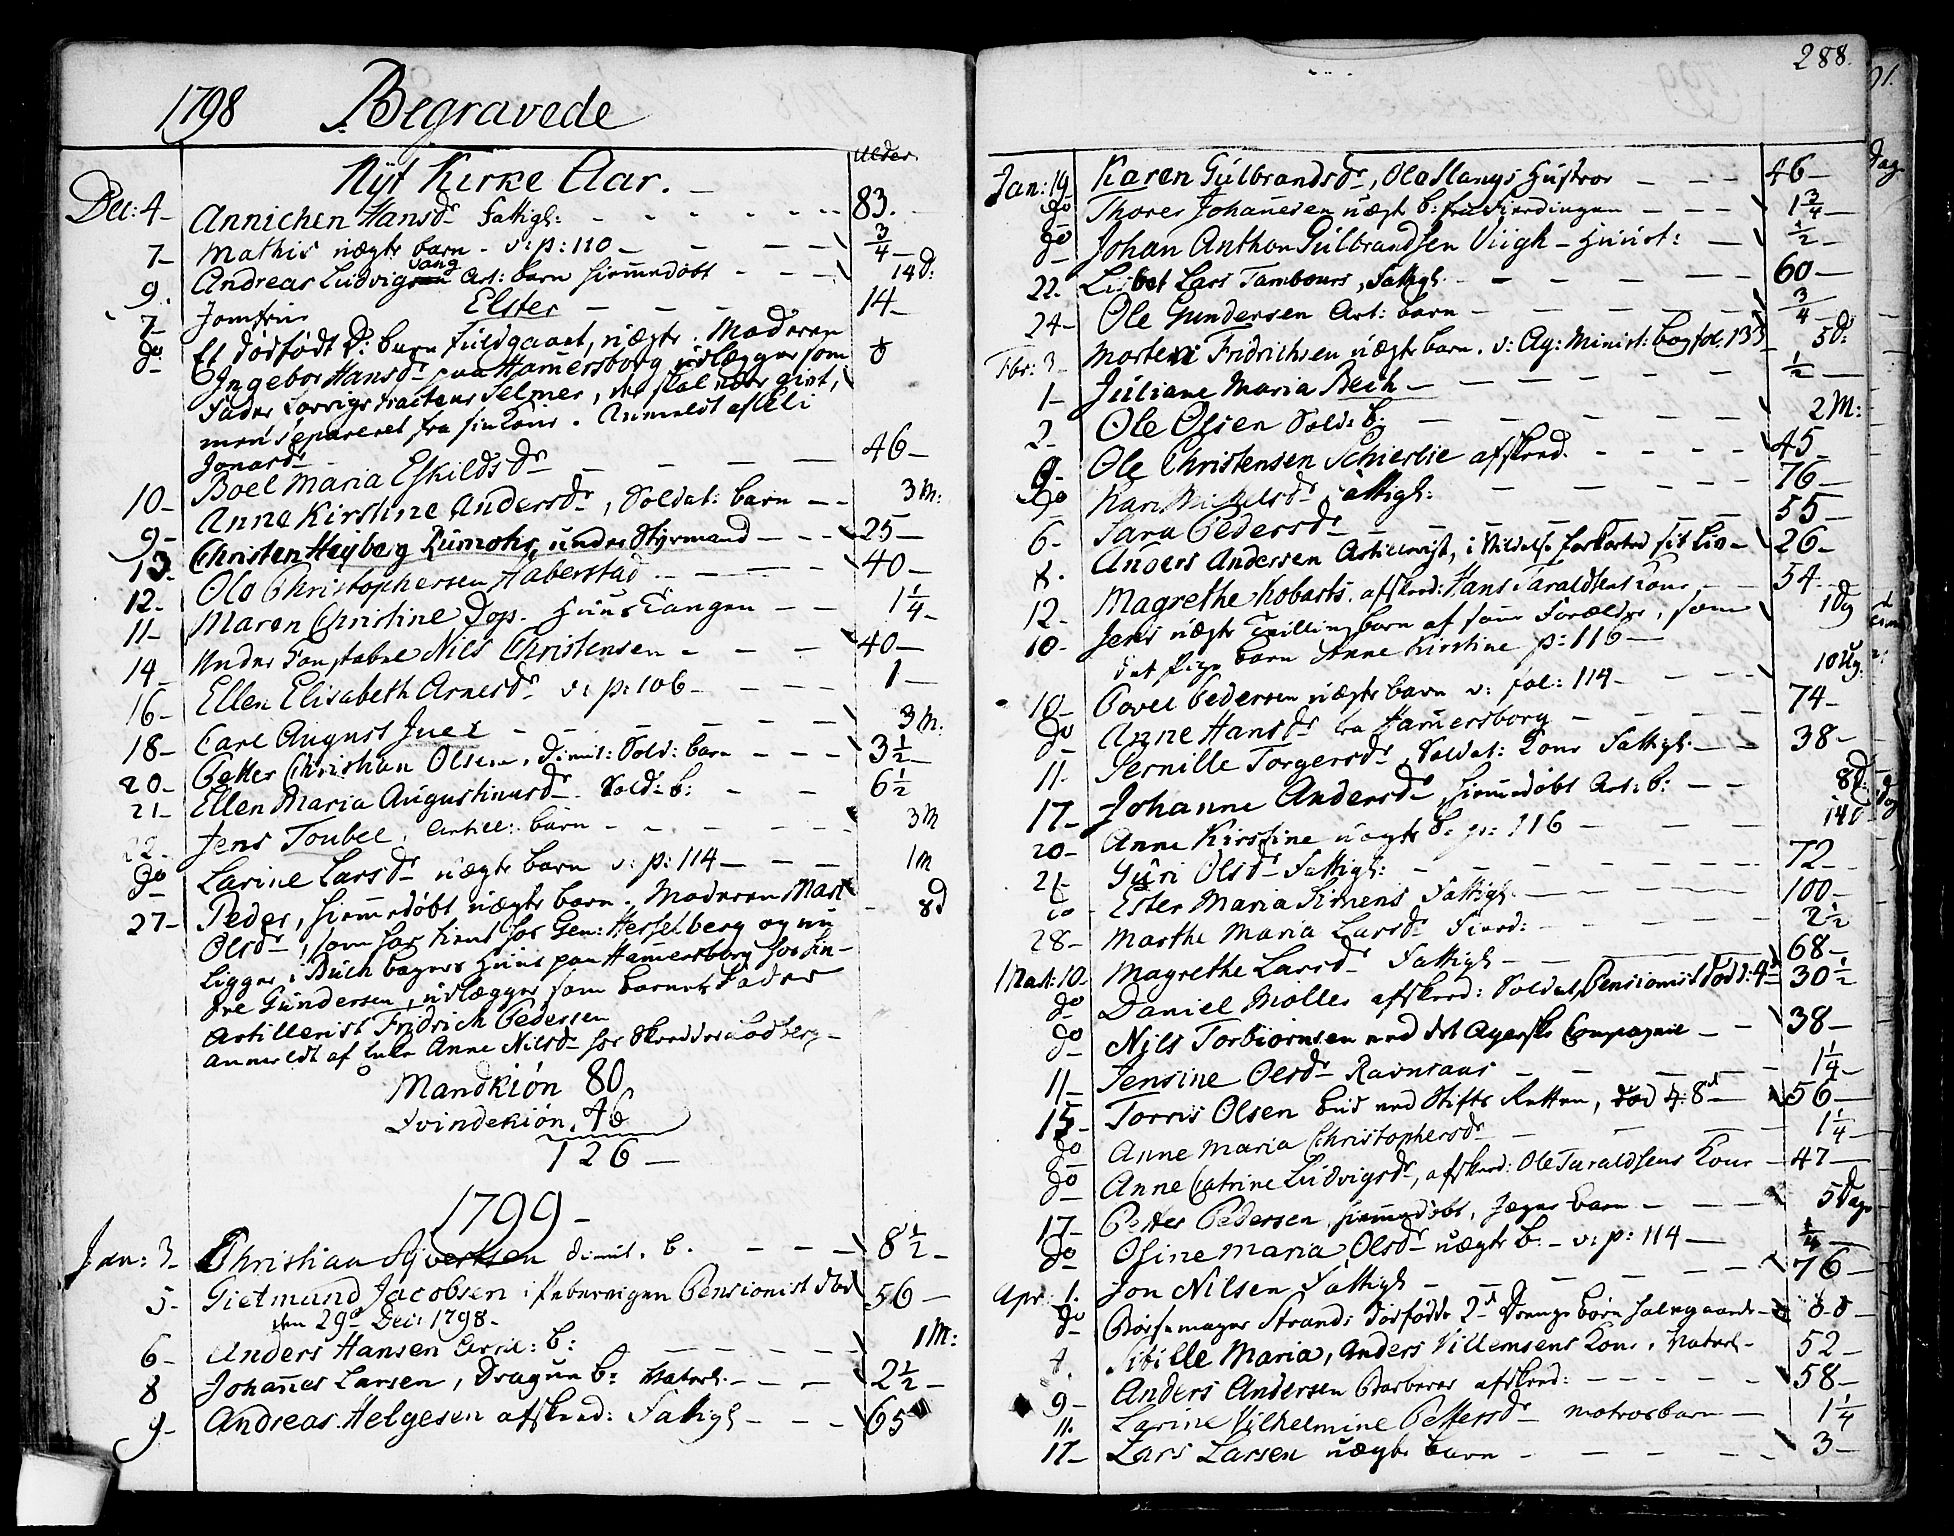 1798 Begravede
Alder
Nÿt Kirke Aar.
Dec: 4 Annichen Hansdr Fattigl: 83.
7 Mathis uægte barn v: p: 110 3/4
9. Andreas Ludvigsen vang Art: barn hiemmedøbt 14 d:
7 Jomfrue Elster 14
do Et dødfødt D: barn fuldgaaet, uægte. Moderen
Ingebor Hansdr paa Hamersborg udlægger som
Fader Selmer, der skal være givt,
men separeret fra sin Kone. Anmeldt af Eli
Jonasdr
10 Boel Maria Eskildsdr 46
9 Anne Kirstine Andersdr, Soldat: barn 3 M:
13 Christen Heyberg Rumohr, under Styrmand 25
12 Ole Christophersen Haberstad 40
11 Maren Christine Dops. Huus Tangen 1 1/4
14 Under Konstabel Nils Christensen 40
16 Ellen Elisabeth Arnesdr v: p: 106 1
18 Carl August Juel 3 M:
20 Petter Christian Olsen, dimit: Sold: barn 3 1/2
21 Ellen Maria Augustinusdr Sold: b: 6 1/2
22 Jens Toubel, Artill: barn 3 M
do Larine Larsdr uægte barn v: p: 114 1 m
27 Peder, hiemmedøbt uægte barn. Moderen Mart 8 d
Olsdr, som har tient hos Gen: Hesselberg og nu
ligger i Buch bagers Huus paa Hamersborg hos Sin-
dre Gundersen, udlægger som barnets Fader
Artillerist Fridrich Pedersen
anmeldt af Enke Anne Nilsdr hos Skredder Lodberg
Mandkiøn 80
Qvindekiøn 46
126
1799
Jan: 3 Christian Syvertsen dimit. b. 8 1/2
5 Gietmund Jacobsen i Pebervigen Pensionist død 56
den 29de Dec: 1798
6 Anders Hansen Artil: b: 1 M:
8 Johannes Larsen, Dragun b: Naturl. 2 1/2
9 Andreas Helgesen afskeed: Fattigl 65
288.
Jan: 19 Karen Gulbrandsdr, Ole Slangs Hustroe 46
do Thores Johannesen uægte b: fra Fierdingen 1 3/4
do Johan Anthon Gulbrandsen Viigh - Huust: 1/2
22. Lisbet Lars Tambours, Fattigl 60
24 Ole Gundersen Art: barn 3/4
Fbr: 3 Morten Fridrichsen uægte barn. v: Ag: Minist: bog fol. 133 5 d:
1 Juliane Maria Bech 1/2
2 Ole Olsen Sold: b: 2 M:
6 Ole Christensen Schierlie afskeed. 45
do Kari Michelsdr Fattigl: 76
6 Sara Pedersdr 55
8. Anders Andersen Artillerist, i Ildelse forkorted sit Liv 26
12 Magrethe Kobarts. afskeed: Hans Taraldsens Kone 54
10 Jens uægte Tvilling barn af samme Forældre, som 1 dg
det Pige barn Anne Kirstine p: 116
10 Povel Pedersen uægte barn v: fol: 114 10 Ug.
do Anne Hansdr fra Hamersborg 74
11 Pernille Torgersdr, Soldat: Kone Fattigl. 38
17 Johanne Andersdr, hiemmedøbt Art: b: 8 d:
20 Anne Kirstine uægte b. p: 116 14 d
21 Guri Olsdr Fattigl: 72
do Ester Maria Simens Fattigl. 100
28 Marthe Maria Larsdr Fierd: 2 1/2
Mart: 10 Magrethe Larsdr Fattigl 68
do Daniel Møller afskeed: Soldat, Pensionist død d: 4de 30 1/2
do Nils Torbiørnsen ved det Agerske Compagnie 38
11 Jensine Olsdr Ravnsaas 1 1/4
15 Torris Olsen bud ved Stifts Retten, død d: 8de 56
do Anne Maria Christophersdr 1 1/4
do Anne Catrine Ludvigsdr, afskeed: Ole Taraldsens Kone 47
17 Petter Pedersen, hiemmedøbt, Jæger barn 5 dage
do Osine Maria Olsdr uægte b. v: p: 114 1/4
Apr: 1. Jon Nilsen Fattigl 76
do Bøssemager Strands dødfødte 2de Drenge børn halvgaaede 0 0
Sibille Maria, Anders Villemsens Kone, Naturl 52
9 Anders Andersen Barberer afskeed: 58
11. Larine Vilhelmine Pettersdr matros barn 1 1/4
17 Lars Larsen uægte barn 3